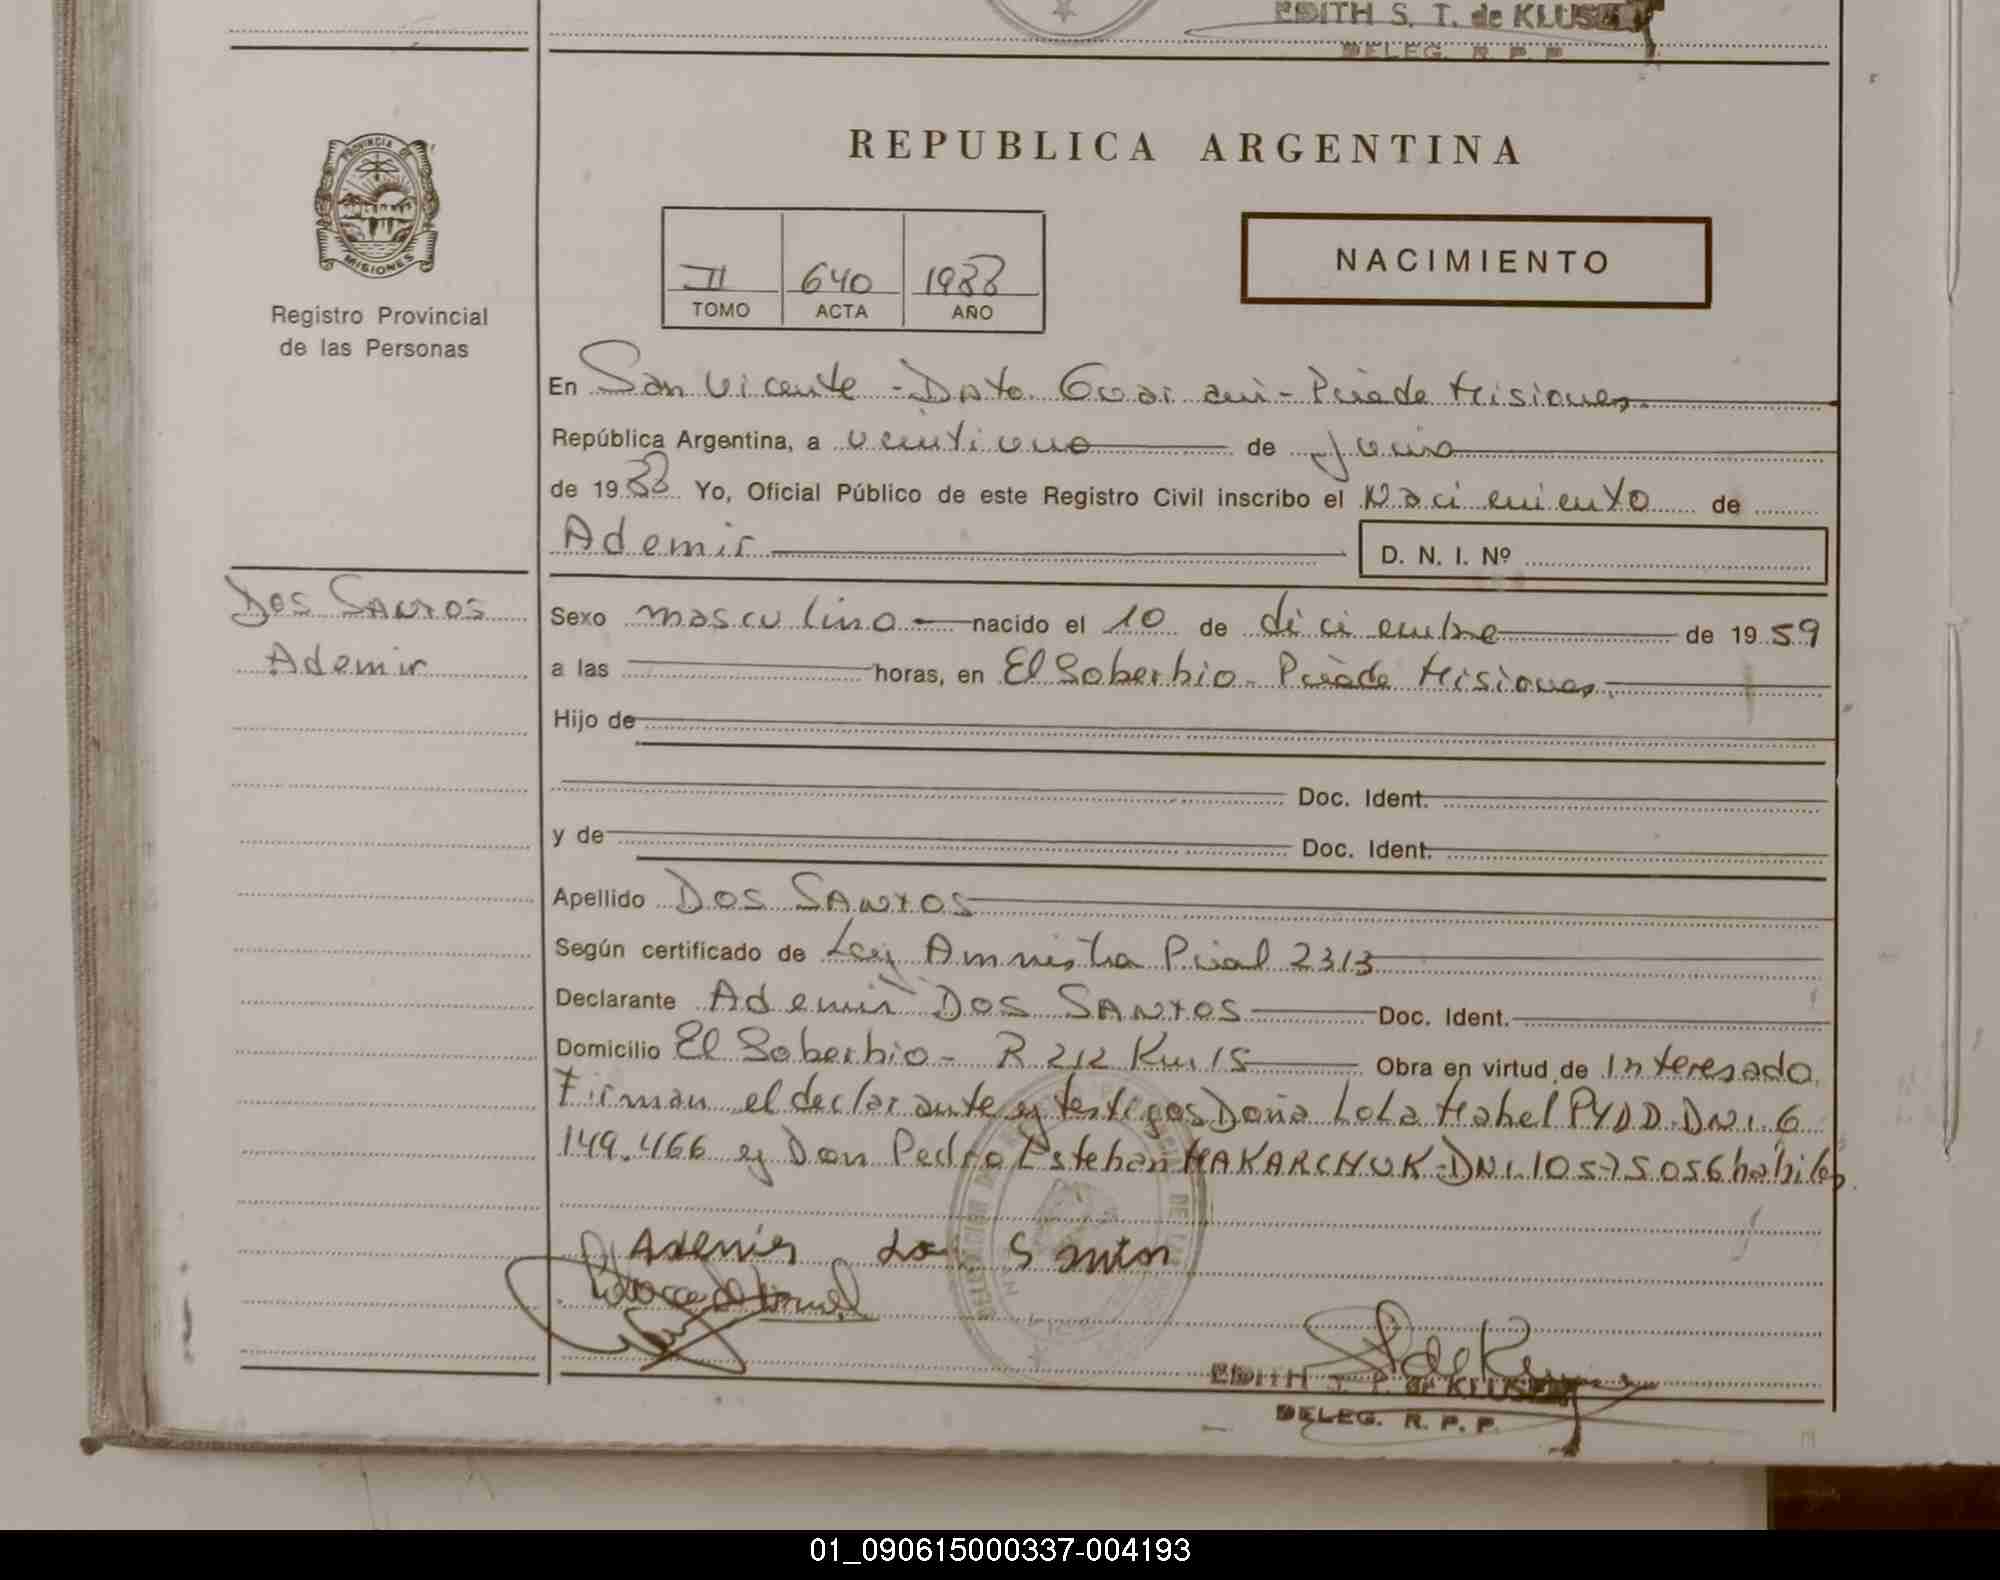 EDITH S. T. de KLUSE
DELEG. R. P. P.
PROVINCIA DE
MISIONES
Registro Provincial
de las Personas
REPUBLICA ARGENTINA
II 640 1988
TOMO ACTA AÑO
NACIMIENTO
En San Vicente - Dpto. Guarani - Pciade Misiones.
República Argentina, a ventiuno de
de 1988 Yo, Oficial Público de este Registro Civil inscribo el Nacimiento de
Ademir
D. N. I. Nº
Dos Santos
Ademir
Sexo masculino nacido el 10 de diciembre de 1959
a las horas, en El Soberbio - Pciade Misiones.
Hijo de
Doc. Ident.
y de Doc. Ident.
Apellido Dos Santos
Según certificado de Ley Amnistia Pcial 2313
Declarante Ademir Dos Santos Doc. Ident.
Domicilio El Soberbio - R 212 Km 15 Obra en virtud de Interesado.
Firman el declarante y testigos Doña Lola Mabel PYDD. DNI. 6
149.466 y Don Pedro Esteban MAKARCHUK - DNI. 10575056 habiles.
Ademir dos Santos
EDITH S. T. de KLUSE
DELEG. R. P. P.
01_090615000337-004193